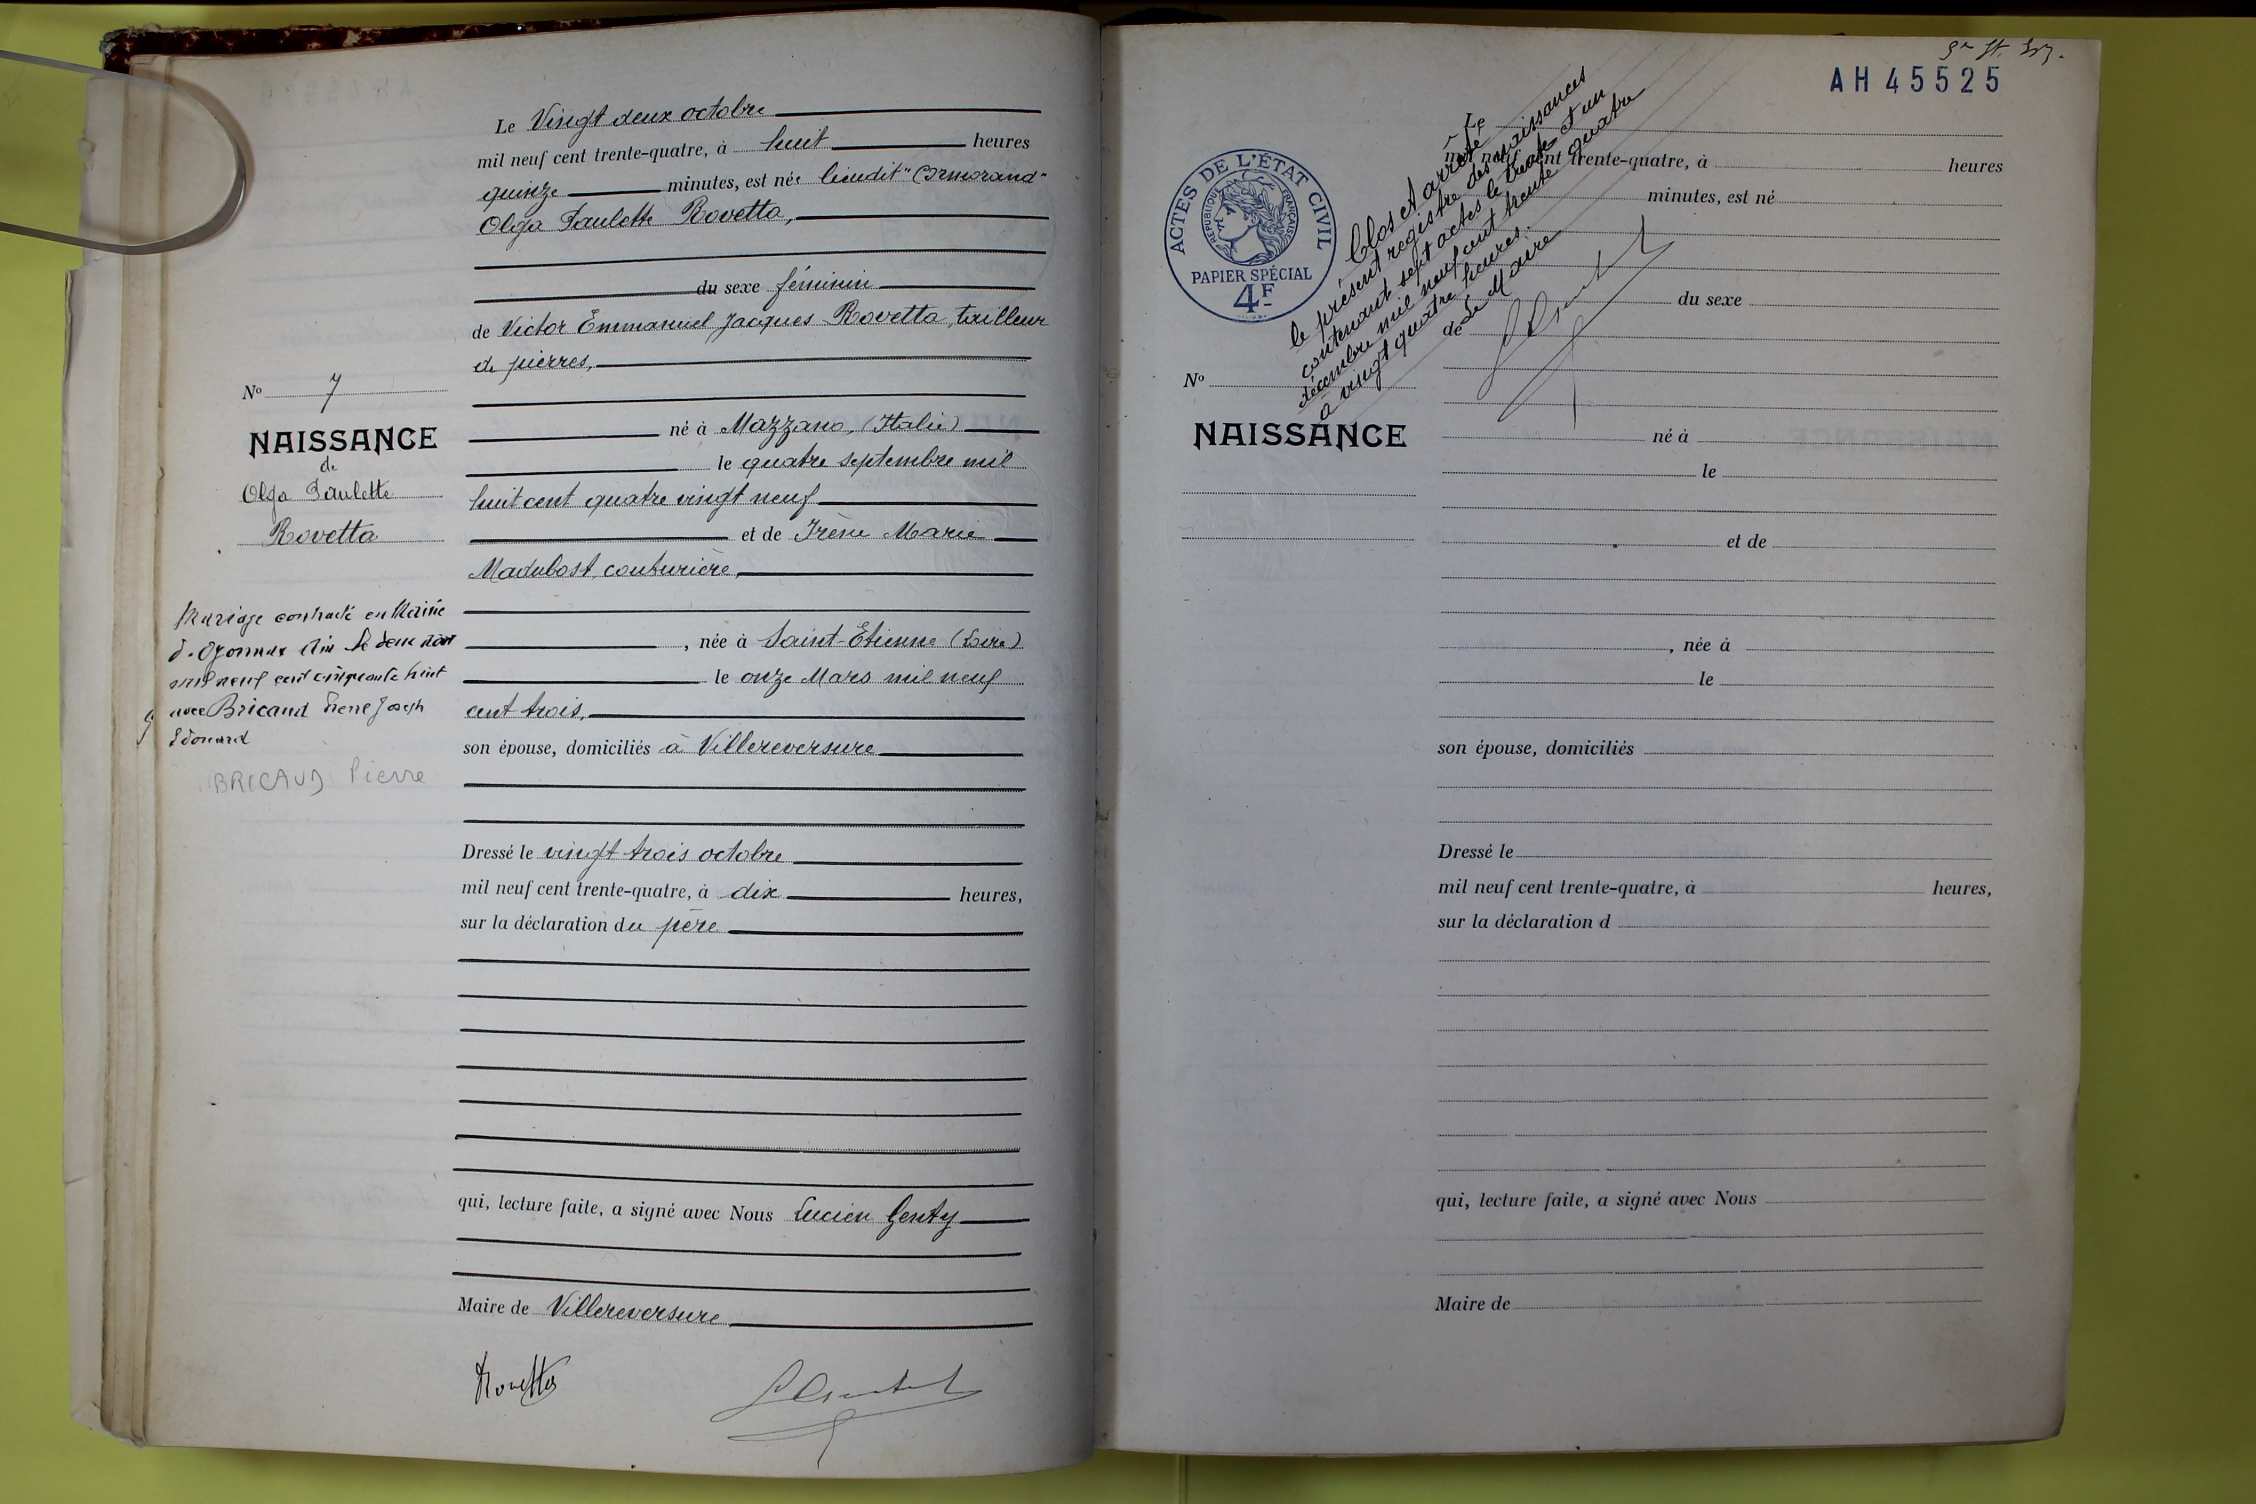 Le Vingt deux octobre
mil neuf cent trente-quatre, à huit heures
quinze minutes, est née lieudit "Cormorand"
Olga Paulette Rovetta,
du sexe féminin
de Victor Emmanuel Jacques Rovetta, tailleur
de pierres,
né à Mazzano, (Italie)
le quatre septembre mil
huit cent quatre vingt neuf
et de Irène Marie
Madubost, couturière,
née à Saint-Etienne (Loire)
le onze Mars mil neuf
cent trois,
son épouse, domiciliés à Villereversure
Dressé le vingt trois octobre
mil neuf cent trente-quatre, à dix heures,
sur la déclaration du père
qui, lecture faite, a signé avec Nous Lucien Genty
Maire de Villereversure
Rovetta
No 7
NAISSANCE
de
Olga Paulette
Rovetta
Mariage contracté en Mairie
d'Oyonnax Ain le deux
mil neuf cent cinquante huit
avec Bricaud Pierre Joseph
Edouard
BRICAUD Pierre
AH 45525
ACTES DE L'ÉTAT CIVIL
RÉPUBLIQUE FRANÇAISE
PAPIER SPÉCIAL
4F
Clos et arrêté
le présent registre des naissances
contenant sept actes le trente et un
décembre mil neuf cent trente quatre
à vingt quatre heures.
Le Maire
Le
mil neuf cent trente-quatre, à heures
minutes, est né
du sexe
de
No
NAISSANCE
né à
le
et de
, née à
le
son épouse, domiciliés
Dressé le
mil neuf cent trente-quatre, à heures,
sur la déclaration d
qui, lecture faite, a signé avec Nous
Maire de